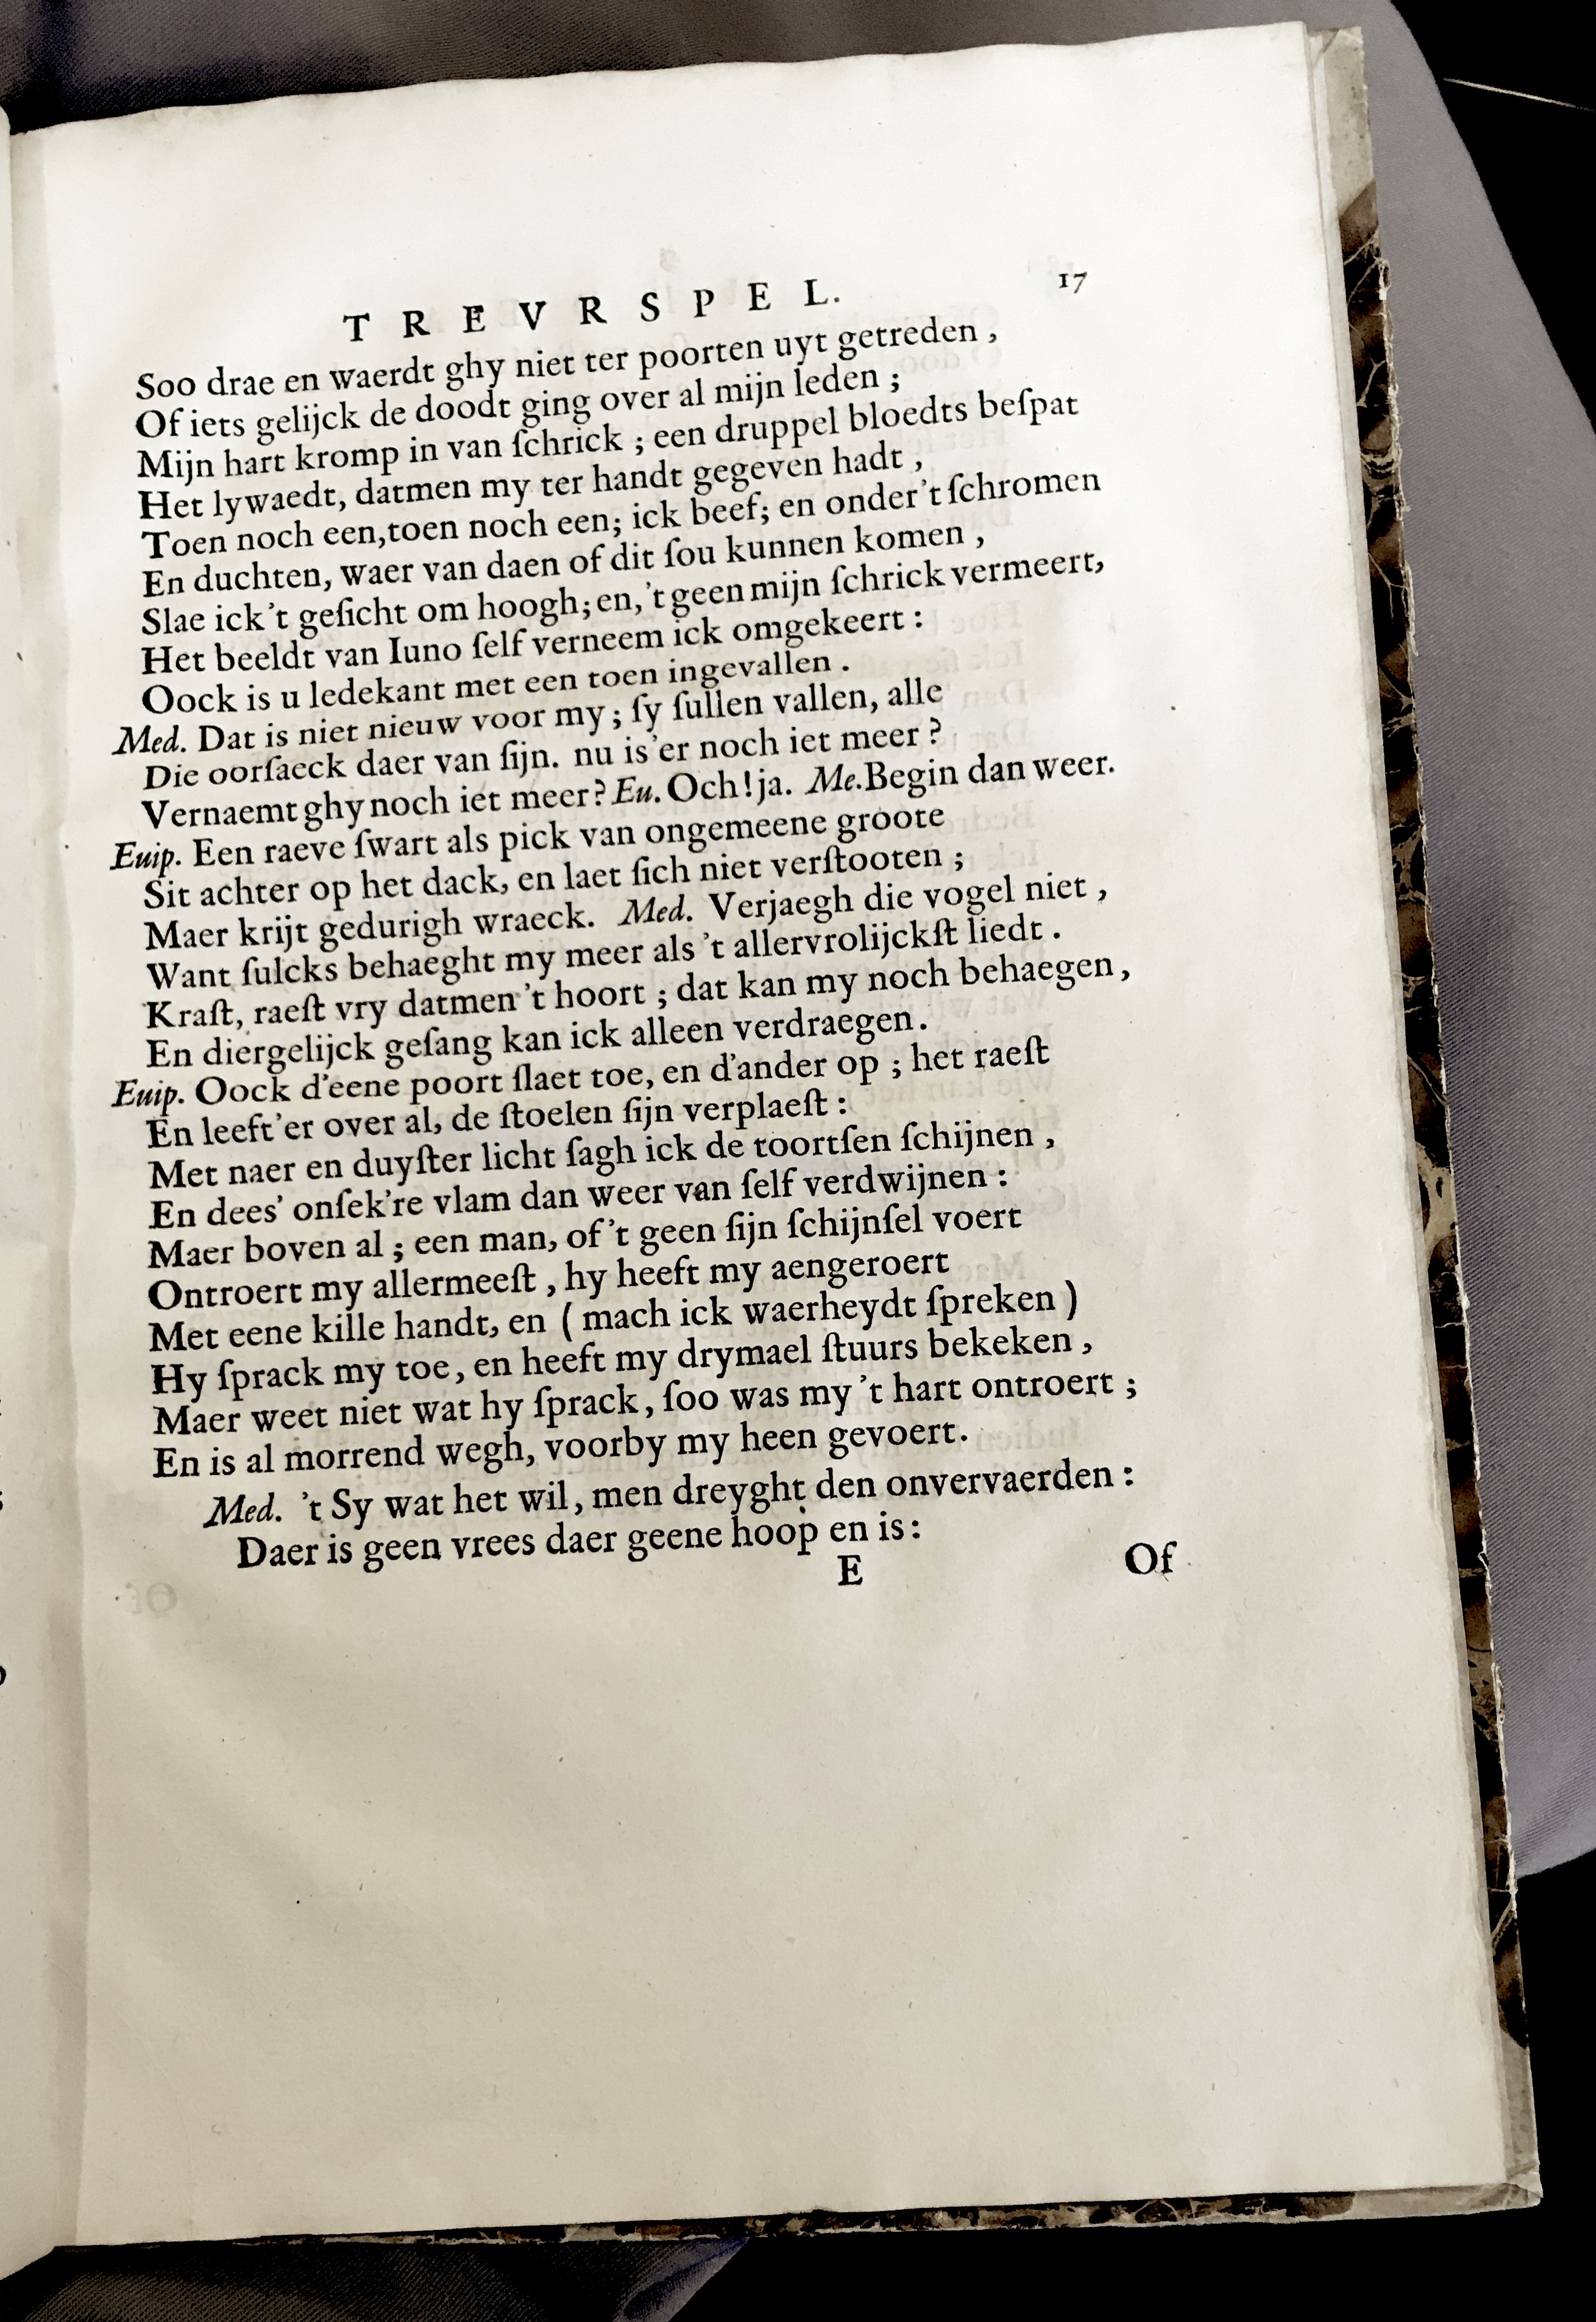 TREVRSPEL. 17
Soo drae en waerdt ghy niet ter poorten uyt getreden,
Of iets gelijck de doodt ging over al mijn leden;
Mijn hart kromp in van ſchrick; een druppel bloedts beſpat
Het lywaedt, datmen my ter handt gegeven hadt,
Toen noch een, toen noch een; ick beef; en onder't ſchromen
En duchten, waer van daen of dit ſou kunnen komen,
Slae ick't geſicht om hoogh; en, 't geen mijn ſchrick vermeert,
Het beeldt van Iuno ſelf verneem ick omgekeert:
Oock is u ledekant met een toen ingevallen.
Med. Dat is niet nieuw voor my; ſy ſullen vallen, alle
Die oorſaeck daer van ſijn. nu is'er noch iet meer?
Vernaemt ghy noch iet meer? Eu. Och! ja. Me. Begin dan weer.
Euip. Een raeve ſwart als pick van ongemeene groote
Sit achter op het dack, en laet ſich niet verſtooten;
Maer krijt gedurigh wraeck. Med. Verjaegh die vogel niet,
Want ſulcks behaeght my meer als 't allervrolijckſt liedt.
Kraſt, raeſt vry datmen 't hoort; dat kan my noch behaegen,
En diergelijck geſang kan ick alleen verdraegen.
Euip. Oock d'eene poort ſlaet toe, en d'ander op; het raeſt
En leeft'er over al, de ſtoelen ſijn verplaeſt:
Met naer en duyſter licht ſagh ick de toortſen ſchijnen,
En dees' onſek're vlam dan weer van ſelf verdwijnen:
Maer boven al; een man, of 't geen ſijn ſchijnſel voert
Ontroert my allermeeſt, hy heeft my aengeroert
Met eene kille handt, en (mach ick waerheydt ſpreken)
Hy ſprack my toe, en heeft my drymael ſtuurs bekeken,
Maer weet niet wat hy ſprack, ſoo was my 't hart ontroert;
En is al morrend wegh, voorby my heen gevoert.
Med. 't Sy wat het wil, men dreyght den onvervaerden:
Daer is geen vrees daer geene hoop en is:
E Of